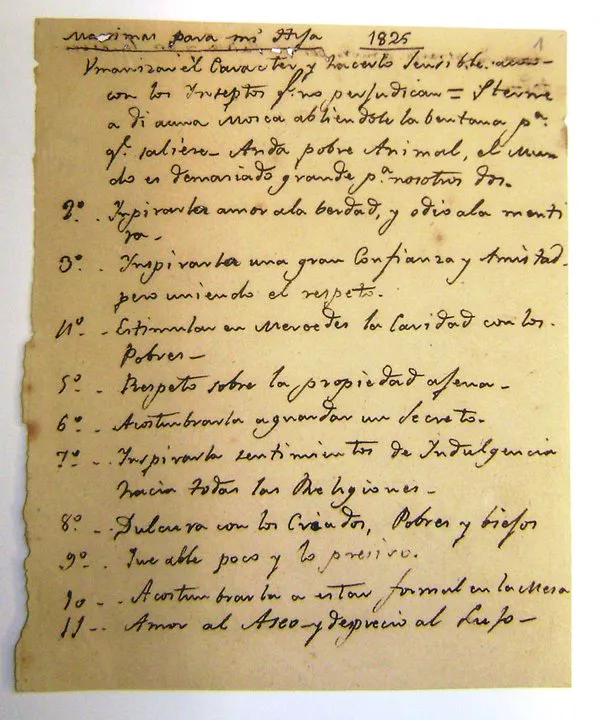 Maximas para mi Hija 1825 1
Vmanizar el Caracter, y hacerlo sensible aun
con los Inseptos qe. no perjudican = Sterne
a di a una Mosca abliendole la bentana pa.
qe. saliese - Anda pobre Animal, el Mun
do es demasiado grande pa. nosotros dos.
2º. Inpirarla amor ala berdad, y odio ala menti
ra -
3º. Inspirarla una gran Confianza y Amistad
pero uniendo el respeto.
4º. - Estimular en Mercedes la Caridad con los
Pobres -
5º - Respeto sobre la propiedad ajena -
6º - Acostumbrarla a guardar un Secreto.
7º - Inspirarla sentimientos de Indulgencia
hacia todas las Religiones -
8º - Dulcura con los Criados, Pobres y biejos
9º - Que able poco y lo presiso.
10 - Acostumbrarla a estar formal en la Mesa
11 - Amor al Aseo - y desprecio al Lujo -